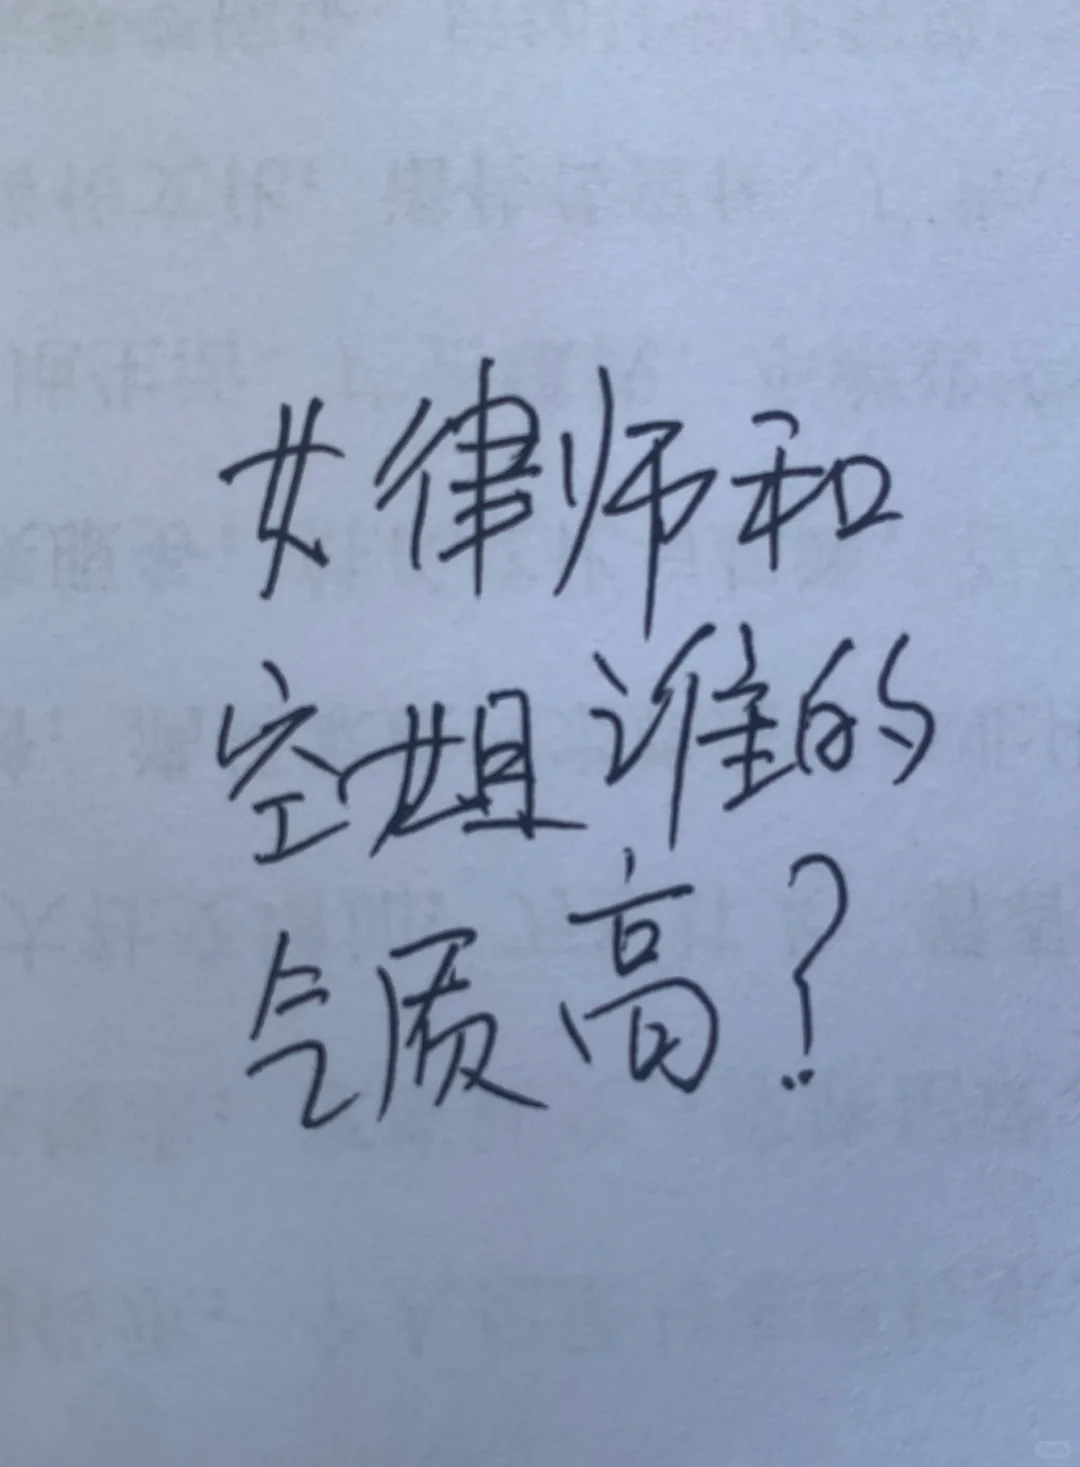 女律师和
空姐谁的
气质高?